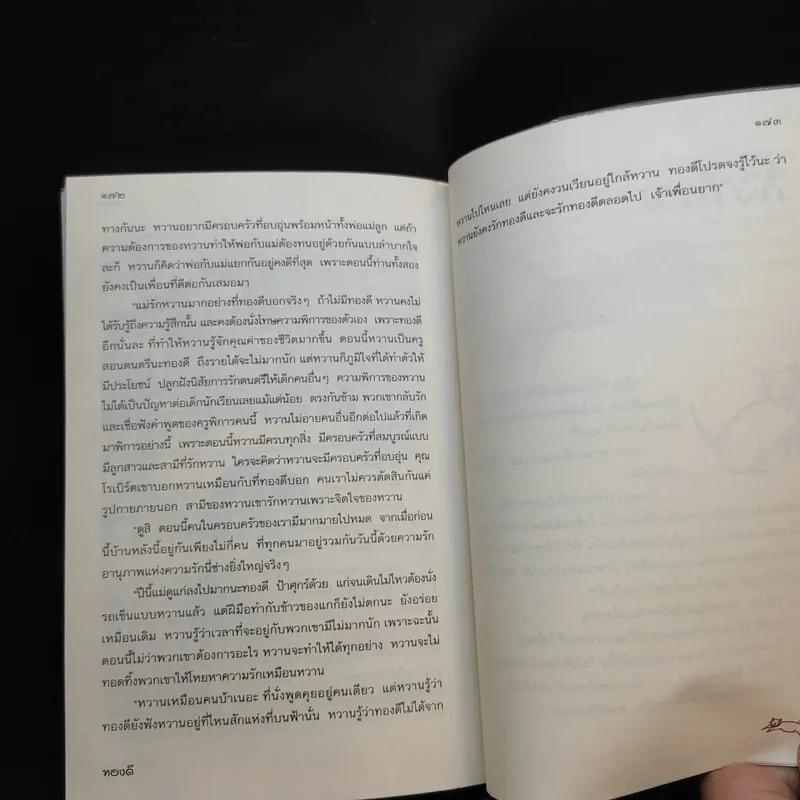 ๑๗๒
ทางกันนะ หวานอยากมีครอบครัวที่อบอุ่นพร้อมหน้าทั้งพ่อแม่ลูก แต่ถ้า
ความต้องการของหวานทำให้พ่อกับแม่ต้องทนอยู่ด้วยกันแบบลำบากใจ
ละก็ หวานก็คิดว่าพ่อกับแม่แยกกันอยู่คงดีที่สุด เพราะตอนนี้ท่านทั้งสอง
ยังคงเป็นเพื่อนที่ดีต่อกันเสมอมา
"แม่รักหวานมากอย่างที่ทองดีบอกจริงๆ ถ้าไม่มีทองดี หวานคงไม่
ได้รับรู้ถึงความรู้สึกนั้น และคงต้องนั่งโทษความพิการของตัวเอง เพราะทองดี
อีกนั่นละ ที่ทำให้หวานรู้จักคุณค่าของชีวิตมากขึ้น ตอนนี้หวานเป็นครู
สอนดนตรีนะทองดี ถึงรายได้จะไม่มากนัก แต่หวานก็ภูมิใจที่ได้ทำตัวให้
มีประโยชน์ ปลูกฝังนิสัยการรักดนตรีให้เด็กคนอื่นๆ ความพิการของหวาน
ไม่ได้เป็นปัญหาต่อเด็กนักเรียนเลยแม้แต่น้อย ตรงกันข้าม พวกเขากลับรัก
และเชื่อฟังคำพูดของครูพิการคนนี้ หวานไม่อายคนอื่นอีกต่อไปแล้วที่เกิด
มาพิการอย่างนี้ เพราะตอนนี้หวานมีครบทุกสิ่ง มีครอบครัวที่สมบูรณ์แบบ
มีลูกสาวและสามีที่รักหวาน ใครจะคิดว่าหวานจะมีครอบครัวที่อบอุ่น คุณ
โรเบิร์ตเขาบอกหวานเหมือนกับที่ทองดีบอก คนเราไม่ควรตัดสินกันแค่
รูปกายภายนอก สามีของหวานเขารักหวานเพราะจิตใจของหวาน
"ดูสิ ตอนนี้คนในครอบครัวของเรามีมากมายไปหมด จากเมื่อก่อน
นี้บ้านหลังนี้อยู่กันเพียงไม่กี่คน ที่ทุกคนมาอยู่รวมกันวันนี้ด้วยความรัก
อานุภาพแห่งความรักนี่ช่างยิ่งใหญ่จริงๆ
"ปีนี้แม่ดูแก่ลงไปมากนะทองดี ป้าศุกร์ด้วย แก่จนเดินไม่ไหวต้องนั่ง
รถเข็นแบบหวานแล้ว แต่ฝีมือทำกับข้าวของแกก็ยังไม่ตกนะ ยังอร่อย
เหมือนเดิม หวานรู้ว่าเวลาที่จะอยู่กับพวกเขามีไม่มากนัก เพราะฉะนั้น
ตอนนี้ไม่ว่าพวกเขาต้องการอะไร หวานจะทำให้ได้ทุกอย่าง หวานจะไม่
ทอดทิ้งพวกเขาให้โหยหาความรักเหมือนหวาน
"หวานเหมือนคนบ้าเนอะ ที่นั่งพูดคุยอยู่คนเดียว แต่หวานรู้ว่า
ทองดียังฟังหวานอยู่ที่ไหนสักแห่งที่บนฟ้านั่น หวานรู้ว่าทองดีไม่ได้จาก
ทองดี
๑๗๓
หวานไปไหนเลย แต่ยังคงวนเวียนอยู่ใกล้หวาน ทองดีโปรดจงรู้ไว้นะ ว่า
หวานยังคงรักทองดีและจะรักทองดีตลอดไป เจ้าเพื่อนยาก"